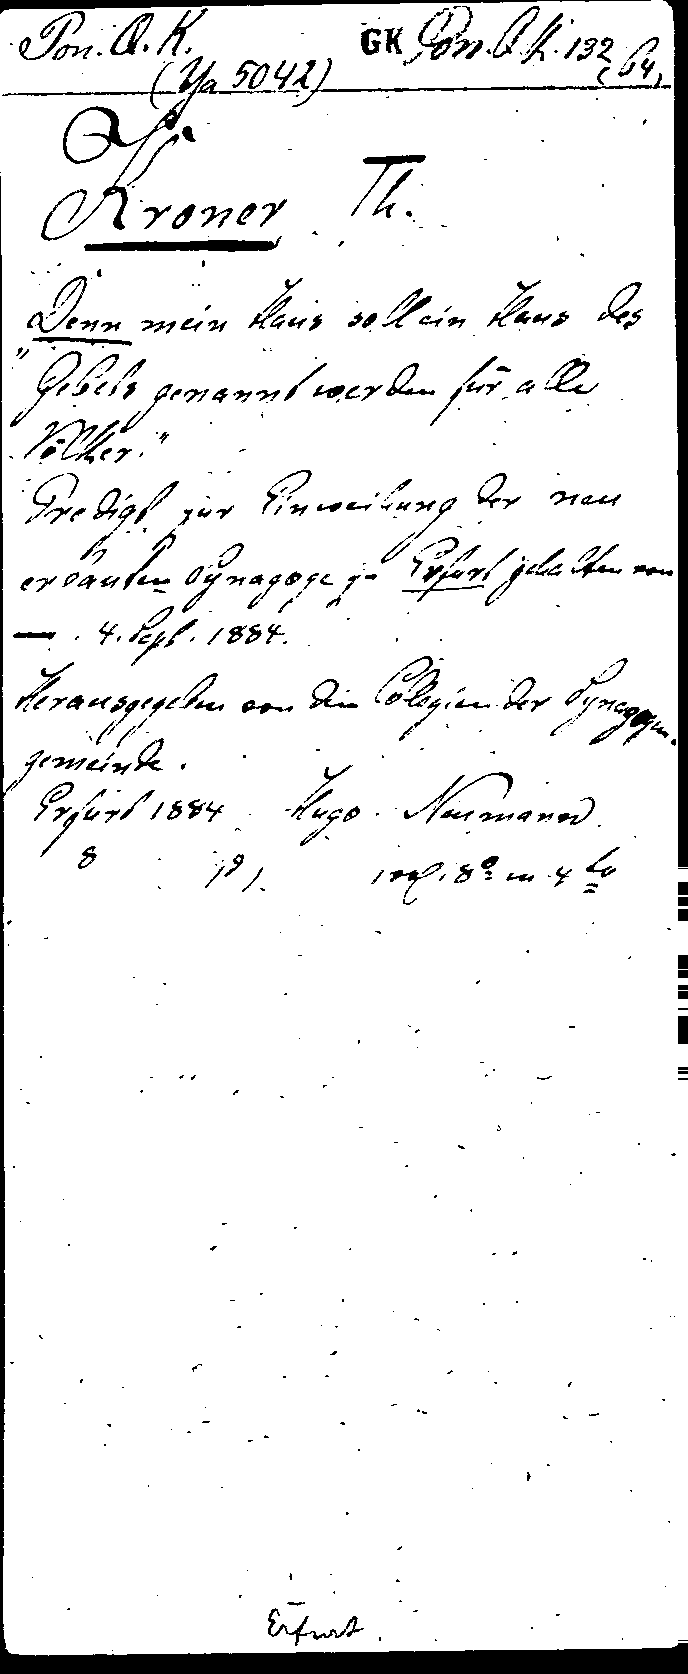 Pon. Q. K. GK Pon. Q. K. 132
(Ya 5042) (64)
Kroner Th.
Denn mein Haus soll ein Haus des
"Gebets genannt werden für alle
Völker."
Predigt zur Einweihung der neu
erbauten Synagoge zu Erfurt gehalten von
— . 4. Sept. 1884.
Herausgegeben von den Collegien der Synagogen-
gemeinde.
Erfurt 1884 Hugo Neumann
8 8° in 4to
Erfurt.